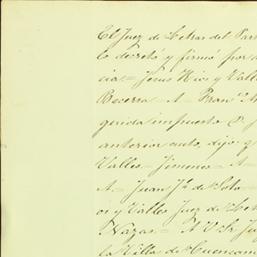 El Juez de Letras del Par
lo decretó y firmó por a
cia = Jesus Rios y Valle
Becerra = A = Fran.co
gerida impuesto
anterior auto, dijo: q
Valles = Jimenes = A =
A = Juan J.e de Soto =
os y Valles Juez de Let
Nazas = A V S. Ju
la Villa de Cuencam